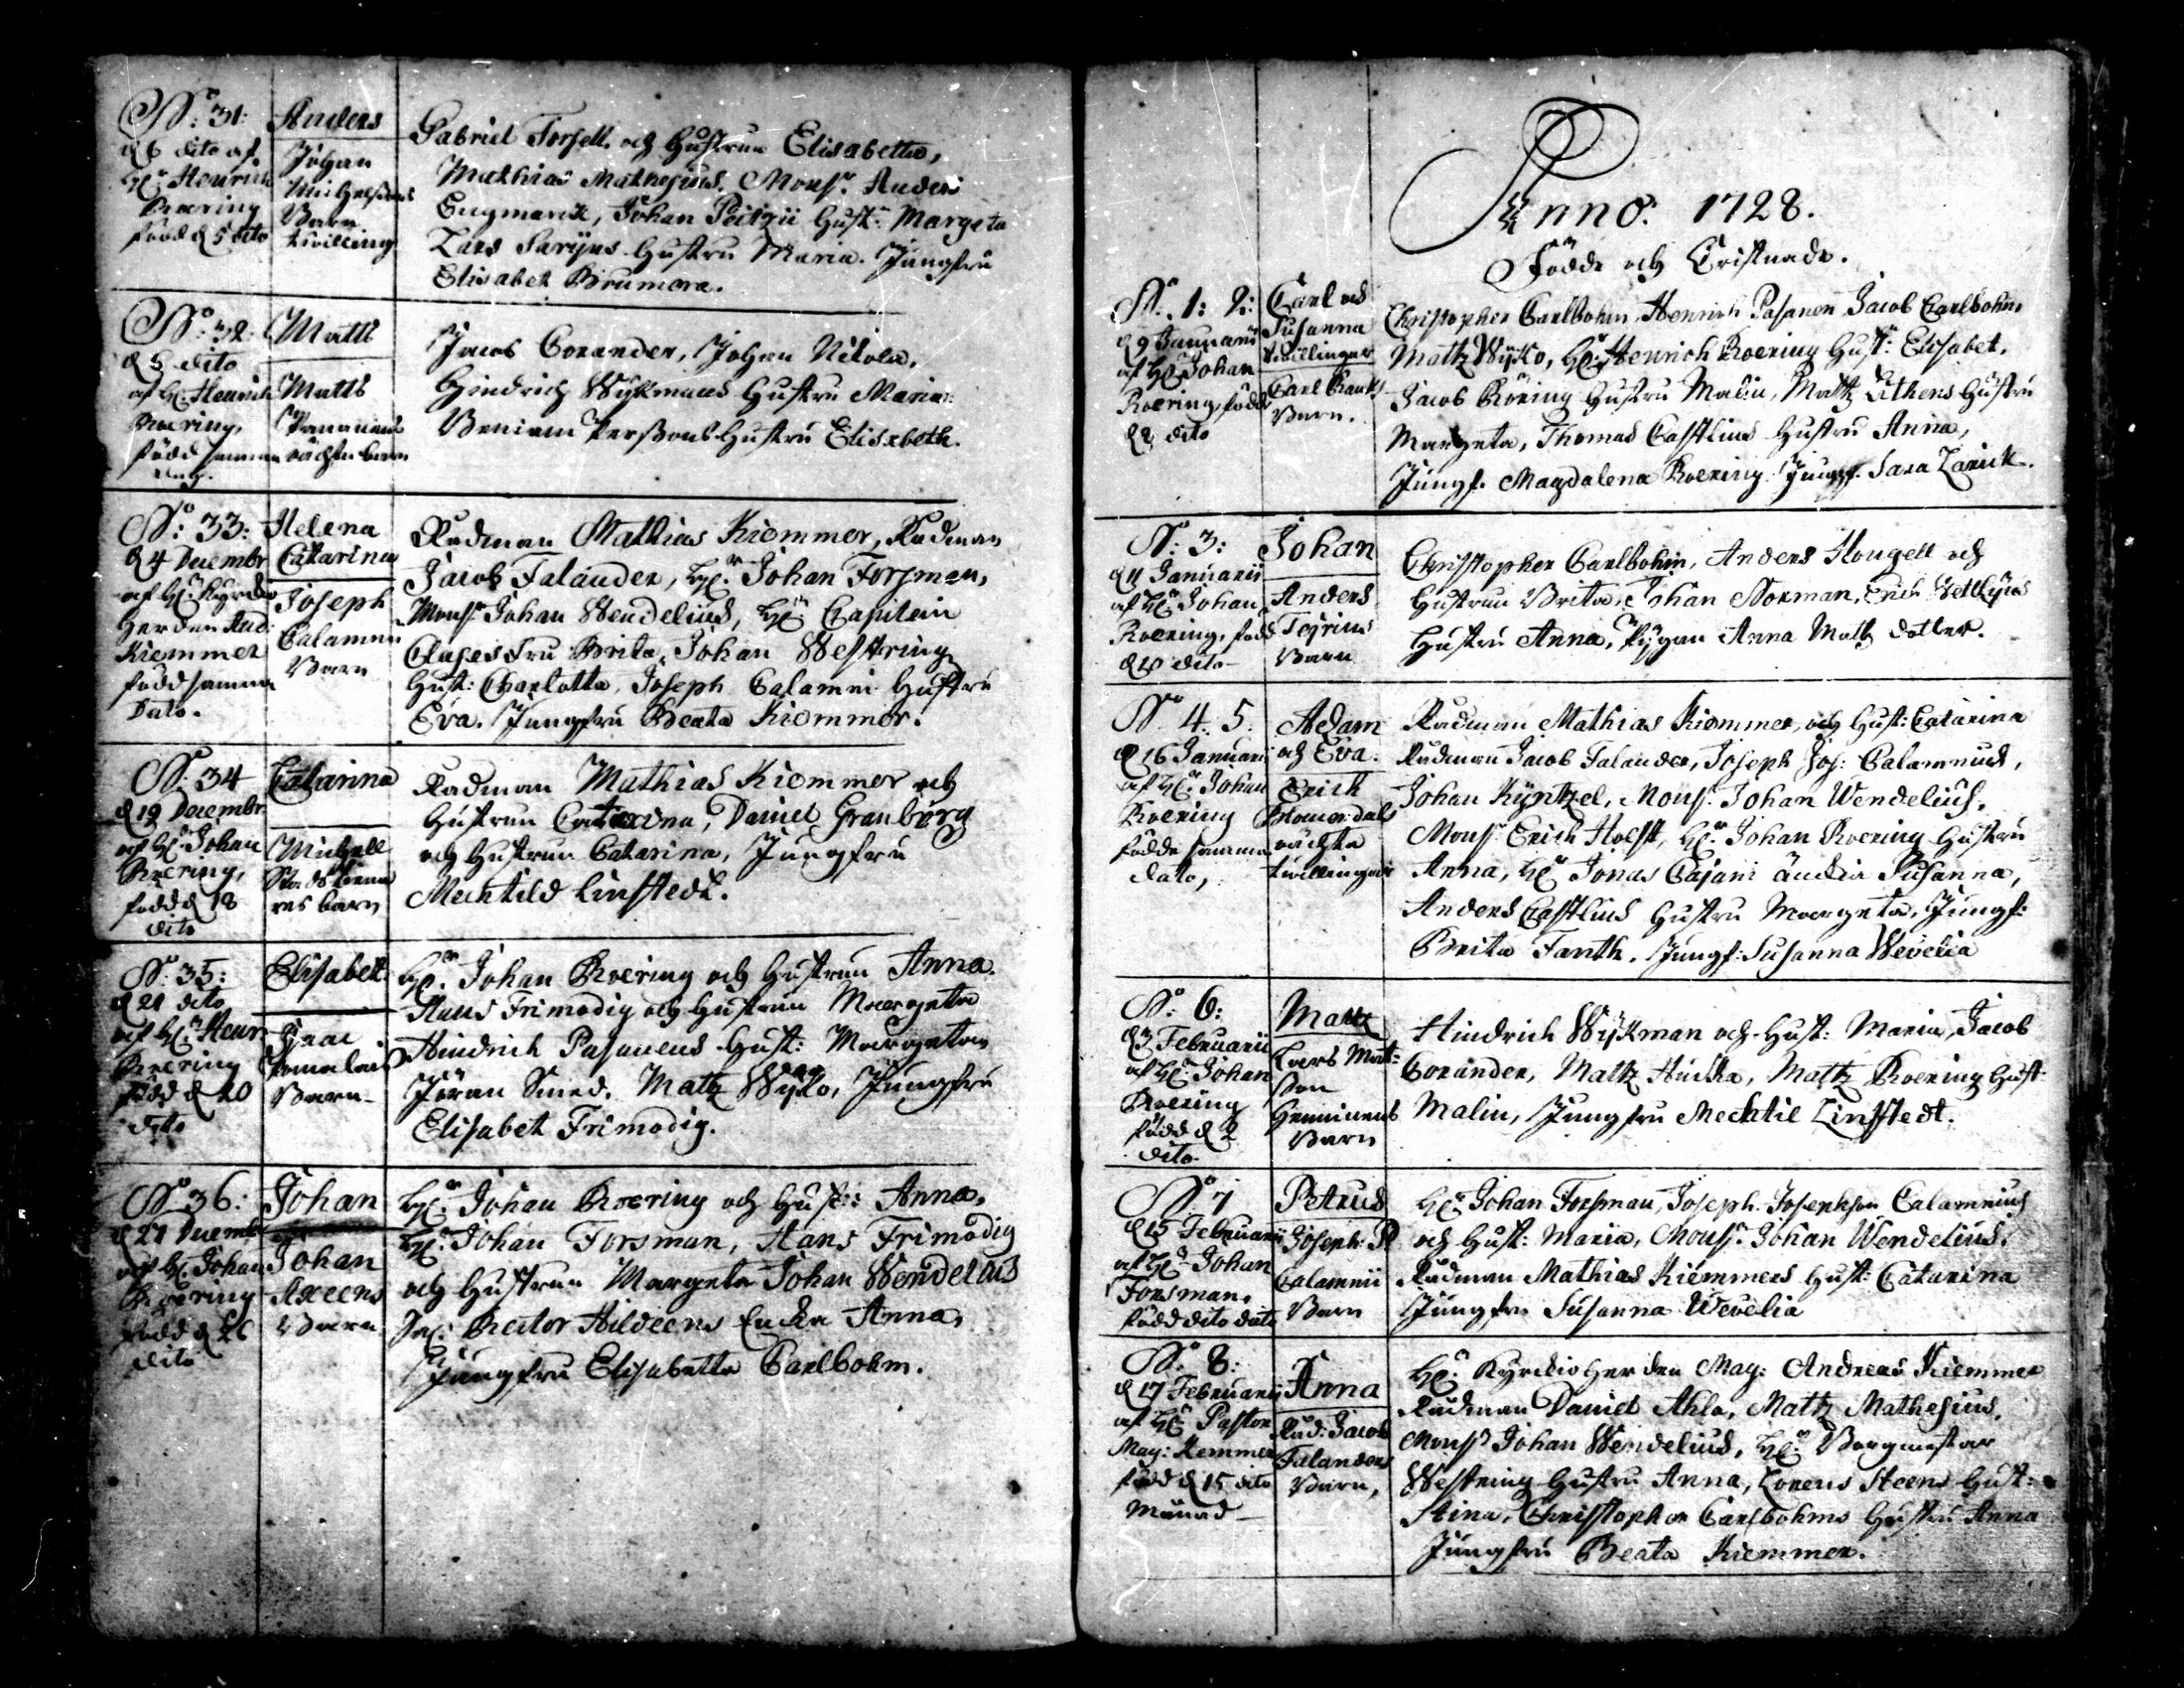 No: 31:
d 6 dito af
Hr Henrich
Roering
född d 5 dito
Anders
Johan
Michelsons
Barn
tvilling
Gabriel Forsell och Hustrun Elisabetta,
Mathias Mathesius. Mons: Anders
Engmarck, Johan Peitzii Hust: Margeta
Lars Sarijus Hustru Maria. Jungfru
Elisabet Brumera.
No: 32:
d 5 dito
af Hr: Henrich
Roering,
född samma
dag.
Matts
Matts
oächta barn
Jacob Corander, Johan Nikola,
Hindrich Wijkmans Hustru Maria
Beniam Perssons Hustru Elisabeth.
No: 33:
d 4 Decembr
af Hr: Kyrckio
Herden And:
Kiemmer
född samma
Dato.
Helena
Catarina
Joseph
Calamni
Barn
Radman Mathias Kiemmer, Radman
Jacob Falander, Hr: Johan Forsman,
Mons: Johan Wendelius, Hr Capitein
Clases Fru Brita, Johan Westring
Hust: Charlotta, Joseph Calamni Hustru
Eva. Jungfru Beata Kiemmer.
No: 34
d 19 Decembr
af Hr: Johan
Roering,
född d 18
dito
Catarina
Michell
Stads
res barn
Radman Mathias Kiemmer och
Hustrun Catarina, Daniel Granborg
och Hustrun Catarina, Jungfru
Mechtild Linstedt.
No: 35:
d 21 dito
af Hr: Henr
Roering
född d 20
dito
Elisabet
Isaac
Barn
Hr: Johan Roering och Hustrun Anna.
Hans Frimodig och Hustrun Margeta
Hindrich Pasanens Hust: Margeta
Jöran Smed. Matz Wijko, Jungfru
Elisabet Frimodig.
No: 36:
d 27 Decembr
af Hr: Johan
Roering
född d 26
dito
Johan
Johan
Axeens
Barn
Hr: Johan Roering och Hust: Anna,
Hr: Johan Forsman, Hans Frimodig
och Hustrun Margeta Johan Wendelius
Sal: Rector Hildeens Encka Anna,
Jungfru Elisabetta Carlbohm.
Anno: 1728.
Födde och Cristnade.
No: 1: 2:
d 9 Januarii
af Hr Johan
Roering, född
d 8 dito
Carl och
Susanna
tvillingar
Carl
Barn.
Christopher Carlbohm, Henrich Pasanen Jacob Carlbohm
Mattz Wijko, Hr: Henrich Roering Hust: Elisabet.
Jacob Röring Hustru Malin, Mattz Lithens Hustru
Margeta, Thomas Castelius Hustru Anna,
Jungf. Magdalena Roering. Jungf. Sara Larick.
No: 3:
d 11 Januarii
af Hr: Johan
Roering, född
d 10 dito
Johan
Anders
Barn
Christopher Carlbohm, Anders Hougell och
Hustrun Brita, Johan Norman, Erich
Hustru Anna, Pigan Anna Matz dotter.
No 4: 5:
d 16 Januarii
af Hr: Johan
Roering
födde samma
dato,
Adam
och Eva.
Erich
oächta
tvillingar
Radman Mathias Kiemmer, och Hust: Catarina
Radman Jacob Falander, Joseph Jos: Calamnius,
Johan Kyntzel, Mons: Johan Wendelius.
Mons: Erich Holst, Hr: Johan Roering Hustru
Anna, Hr Jonas Cajani änckia Susanna,
Anders Castelius Hustru Margeta, Jungf:
Brita Fanth. Jungf: Susanna Wevelia
No: 6:
d 3 Februarii
af Hr: Johan
Roering
född d 2
dito
Mattz
Lars Mat-
son
Hemminens
Barn
Hindrich Wijkman och Hust: Maria, Jacob
Corander, Mattz Hucka, Mattz Roering Hust:
Malin, Jungfru Mechtil Linstedt.
No 7
d 15 Februarii
af Hr: Johan
Forsman,
född dito dato
Petrus
Joseph:
Calamnii
Barn
Hr: Johan Forsman, Joseph Josephson Calamnius
och Hust: Maria, Mons: Johan Wendelius.
Radman Mathias Kiemmers Hust: Catarina
Jungfru Susanna Wevelia
No: 8:
d 17 Februarii
af Hr: Pastor
Mag: Kemmer
född d 15 dito
Månad
Anna
Rad: Jacob
Falanders
Barn,
Hr: Kyrckio Herden Mag: Andreas Kiemmer
Radman Daniel Ahlo, Mattz Mathesius,
Mons: Johan Wendelius, Hr: Borgmestar
Westring Hustru Anna, Lorens Steens Hust:
Stina, Christopher Carlbohms Hustru Anna
Jungfru Beata Kiemmer.